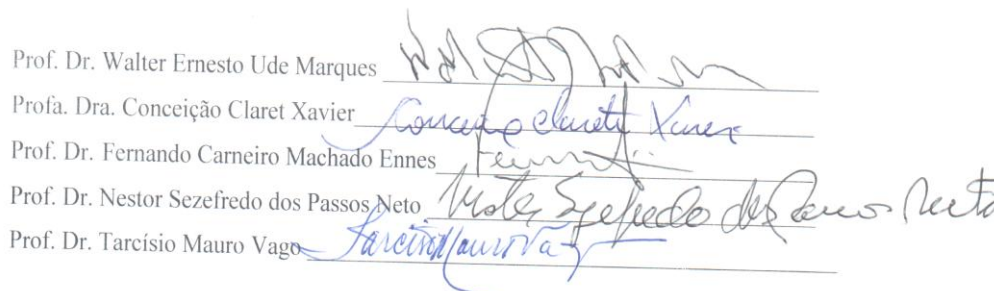 Prof. Dr. Walter Ernesto Ude Marques
Profa. Dra. Conceição Claret Xavier Conceição Claret Xavier
Prof. Dr. Fernando Carneiro Machado Ennes
Prof. Dr. Nestor Sezefredo dos Passos Neto Nestor Sezefredo dos Passos Neto
Prof. Dr. Tarcísio Mauro Vago Tarcísio Mauro Vago